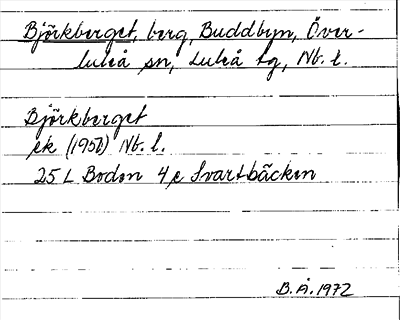 Björkberget, berg, Buddbyn, Över-
luleå sn, Luleå tg, Nb. l.
Björkberget
ek (1950) Nb. l.
25 L Boden 4 e Svartbäcken
B.Å. 1972